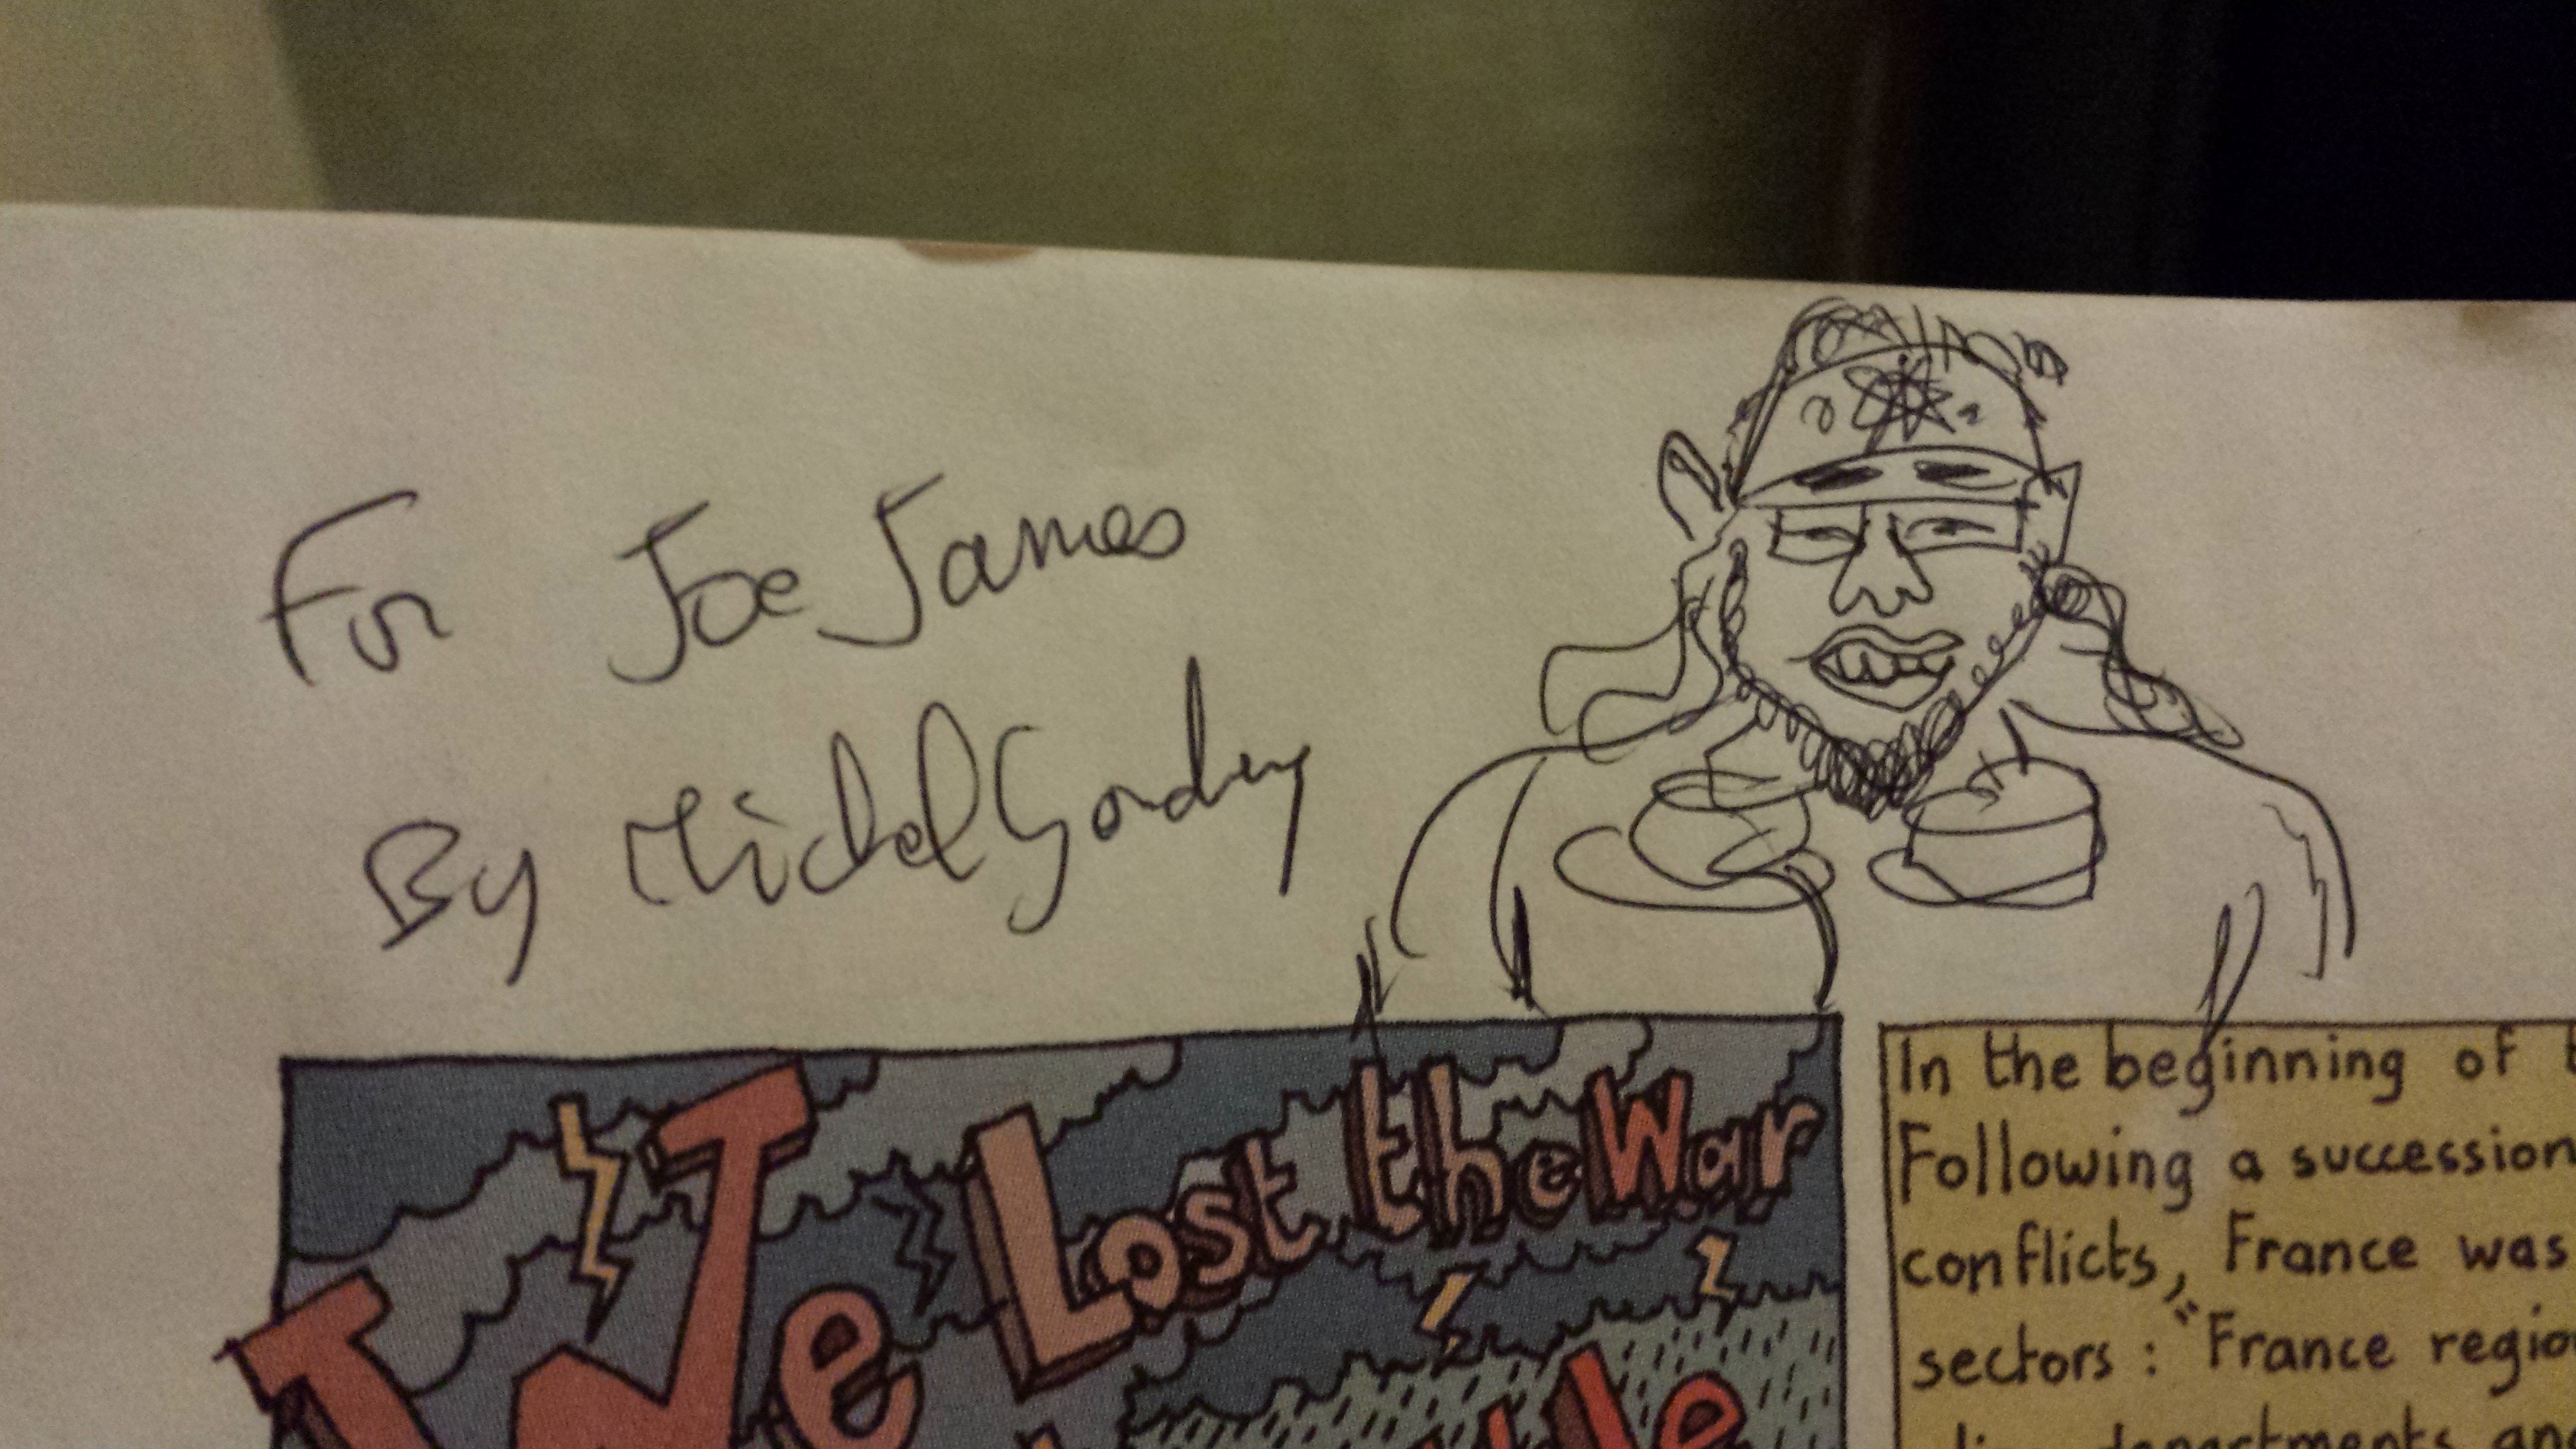 For Joe James
By Michel Gondry
We Lost the War
In the beginning of
Following a succession
conflicts, France was
sectors : "France regio
departments an